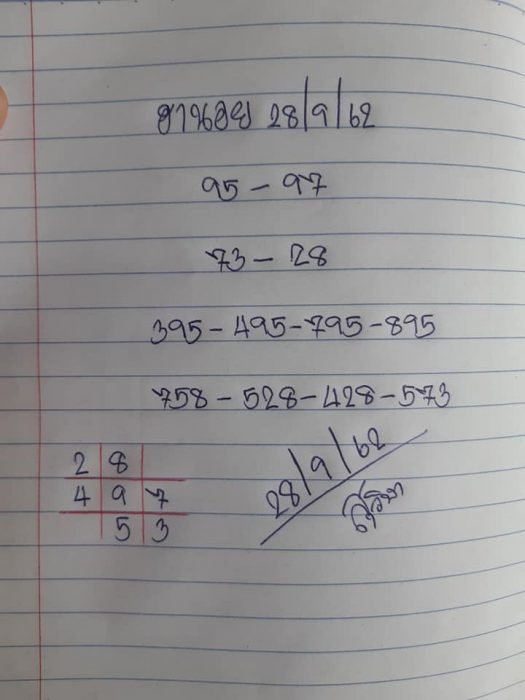 ฮานอย 28/9/62
95 - 97
73 - 28
395 - 495 - 795 - 895
758 - 528 - 428 - 573
2 8
4 9 7
5 3
28/9/62